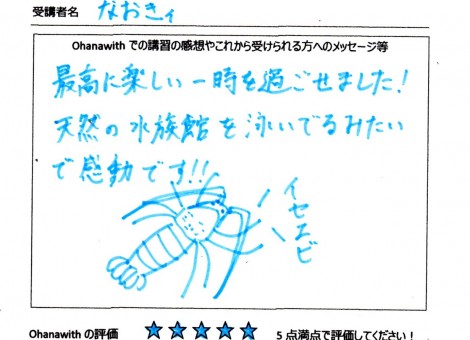 受講者名 なおきィ
Ohanawith での講習の感想やこれから受けられる方へのメッセージ等
最高に楽しい一時を過ごせました！
天然の水族館を泳いでるみたい
で感動です!!
イセエビ
Ohanawith の評価 ★★★★★ 5点満点で評価してください！